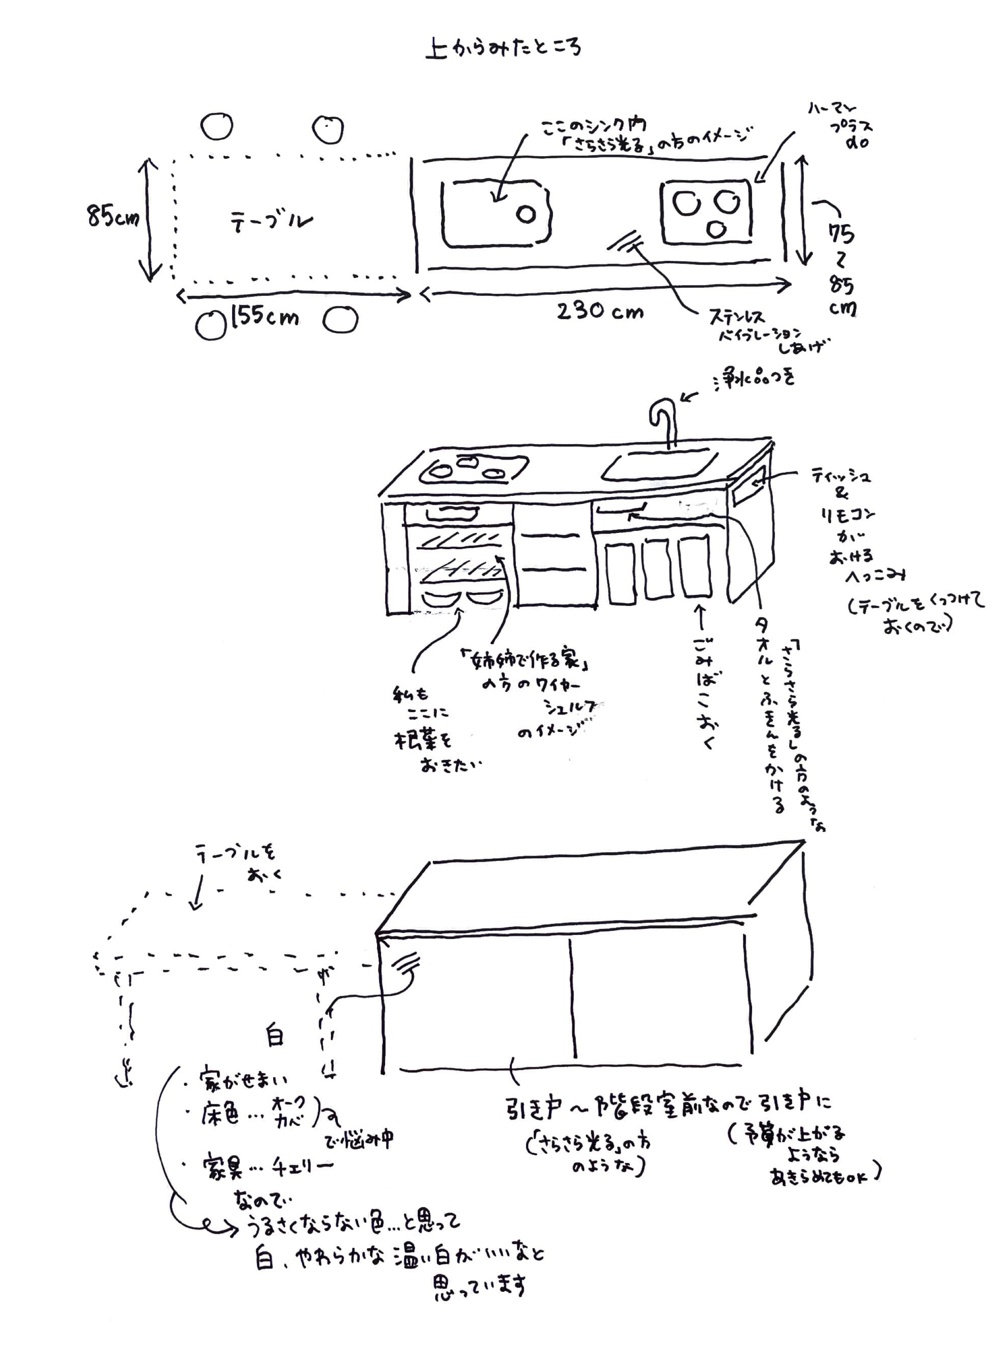 上からみたところ
ハーマン
プラス
do
ここのシンク内
「さらさら光る」の方のイメージ
85cm
テーブル
75
〜
85
cm
155cm
230cm
ステンレス
バイブレーション
しあげ
浄水器つき
ティッシュ
&
リモコン
が
おける
へっこみ
(テーブルをくっつけて
おくので)
「姉妹で作る家」
の方のワイヤー
シェルフ
のイメージ
私も
ここに
根菜を
おきたい
ごみばこおく
タオルとふきんをかける
「さらさら光る」の方のような
テーブルを
おく
白
・家がせまい
・床色…オーク
カバ
で悩み中
・家具…チェリー
なので
うるさくならない色…と思って
白、やわらかな温い白がいいなと
思っています
引き戸〜階段室前なので引き戸に
(「さらさら光る」の方
のような)
(予算が上がる
ようなら
あきらめてもOK)